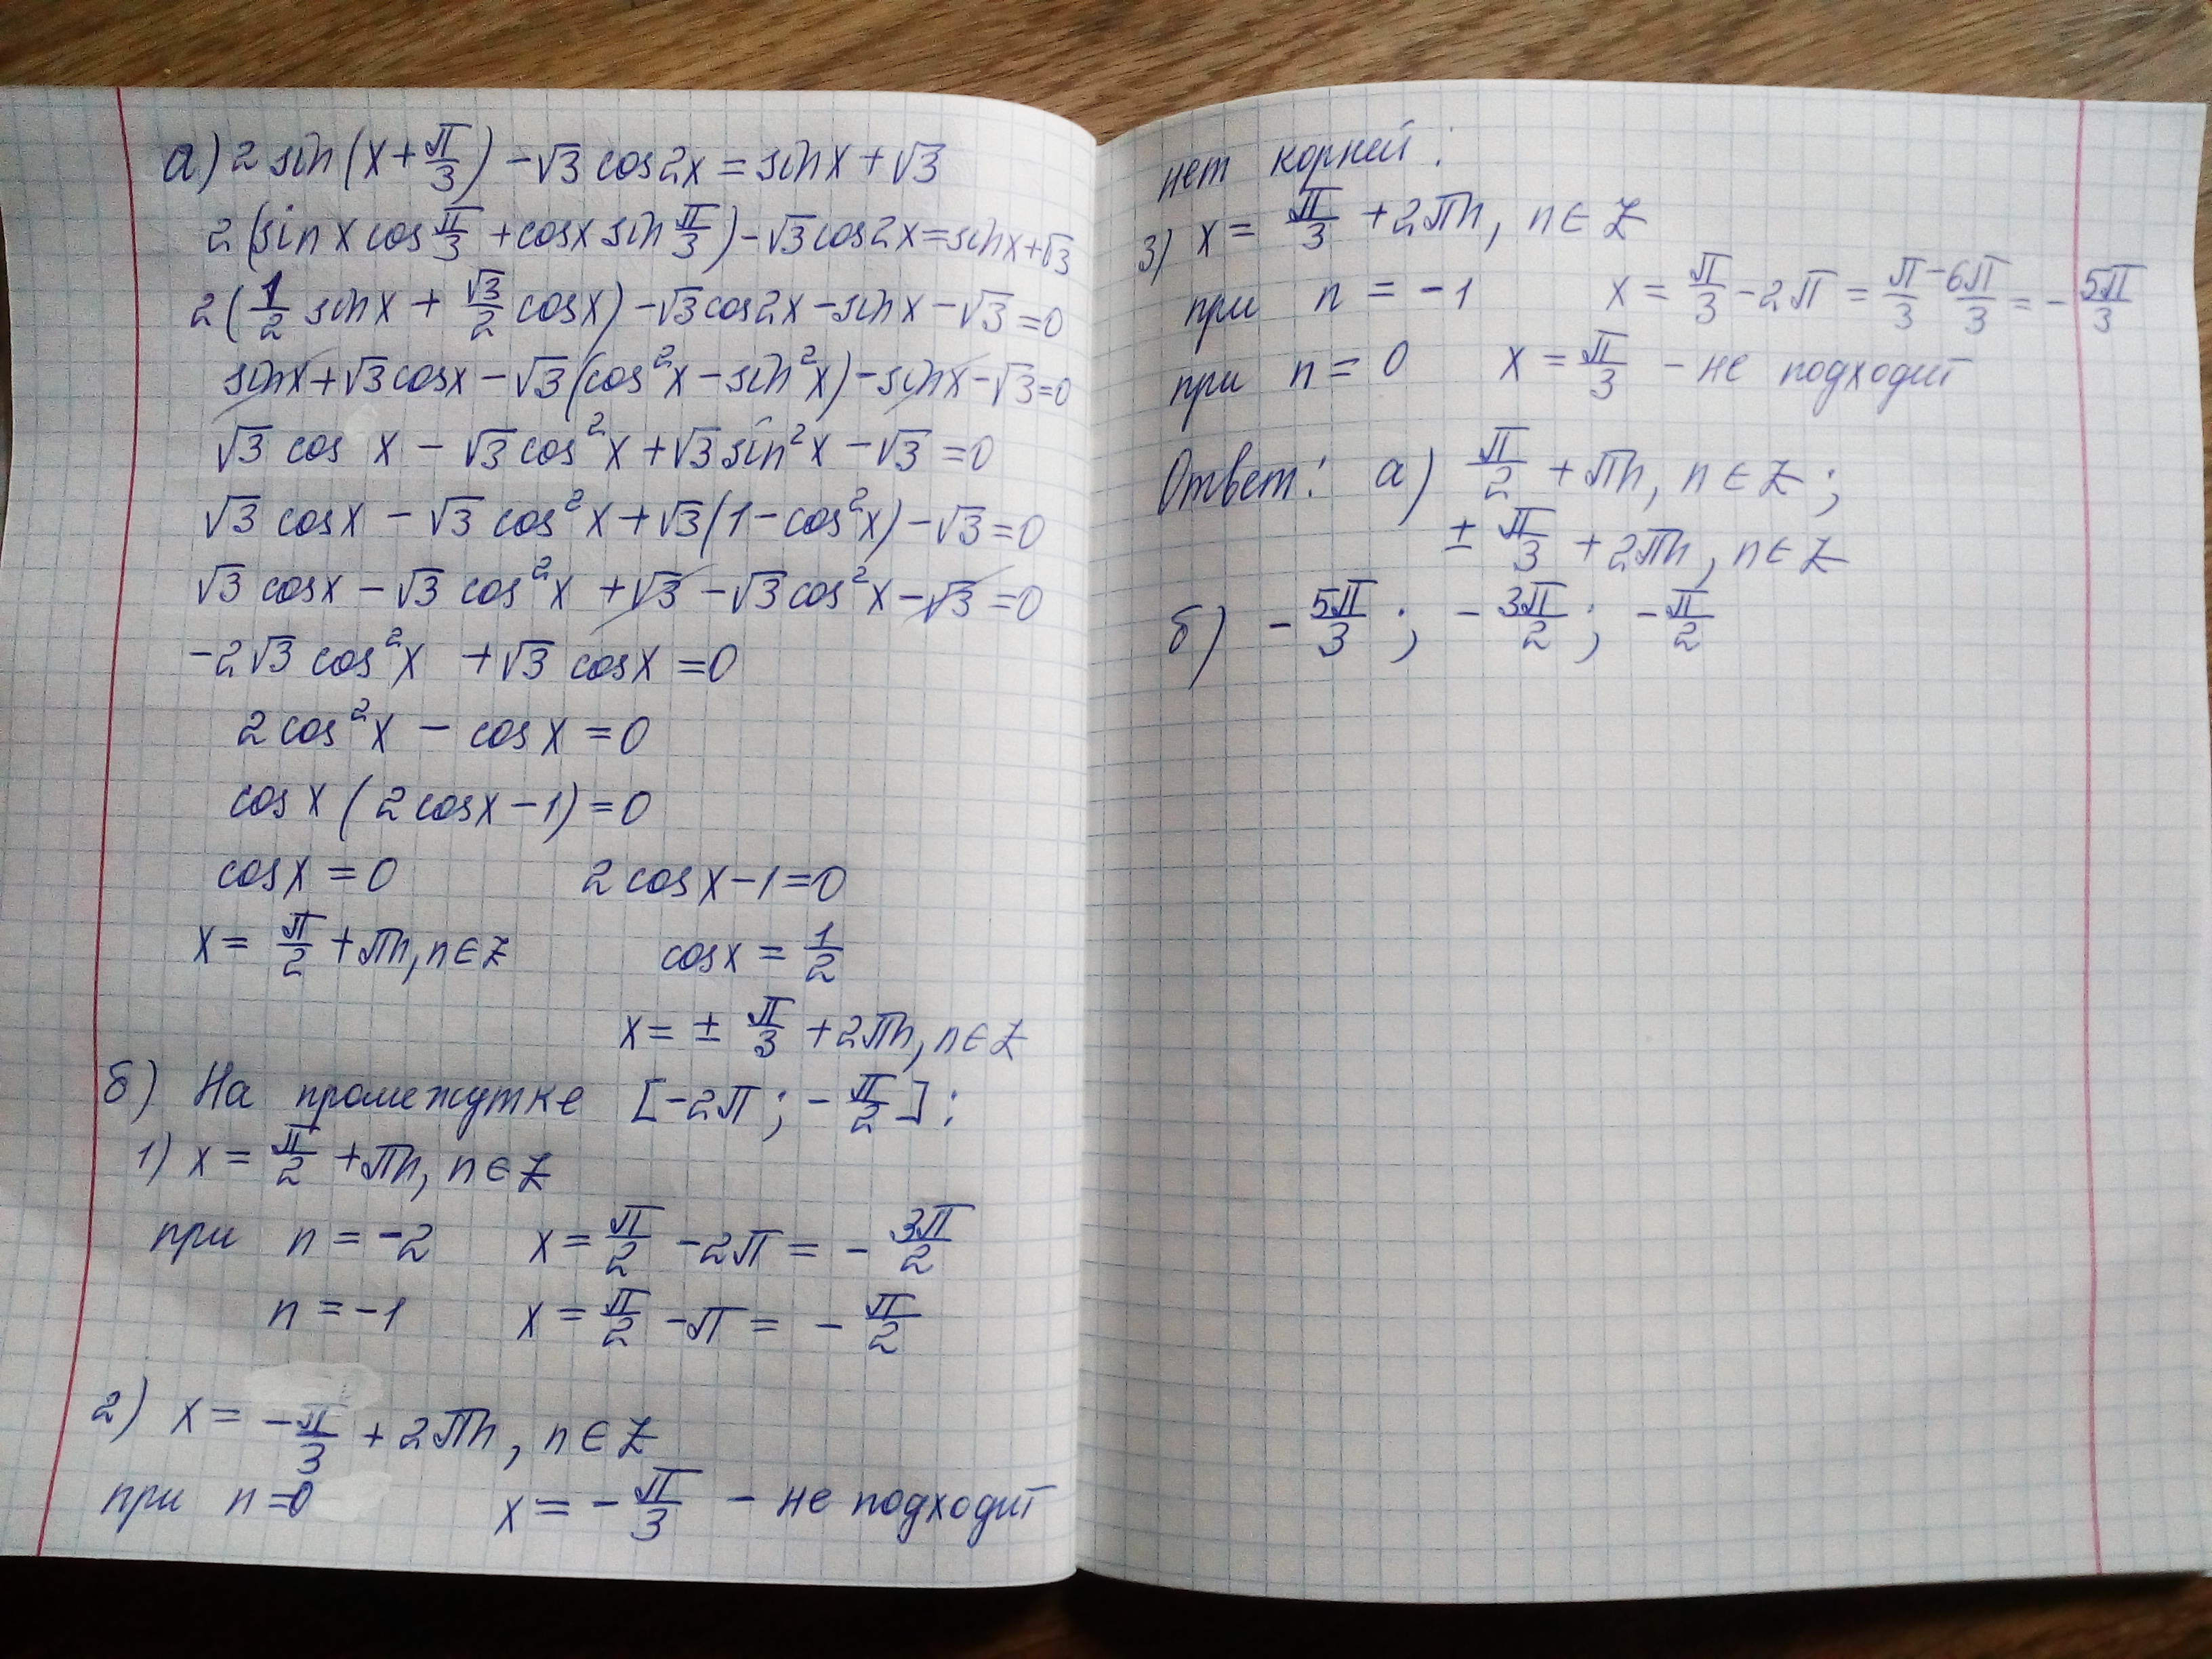 а) 2 sin(x + π/3) - √3 cos 2x = sin x + √3
2(sin x cos π/3 + cos x sin π/3) - √3 cos 2x = sin x + √3
2(1/2 sin x + √3/2 cos x) - √3 cos 2x - sin x - √3 = 0
sin x + √3 cos x - √3(cos²x - sin²x) - sin x - √3 = 0
√3 cos x - √3 cos²x + √3 sin²x - √3 = 0
√3 cos x - √3 cos²x + √3(1 - cos²x) - √3 = 0
√3 cos x - √3 cos²x + √3 - √3 cos²x - √3 = 0
-2√3 cos²x + √3 cos x = 0
2 cos²x - cos x = 0
cos x (2 cos x - 1) = 0
cos x = 0 2 cos x - 1 = 0
x = π/2 + πn, n ∈ Z cos x = 1/2
x = ± π/3 + 2πn, n ∈ Z
б) На промежутке [-2π; -π/2]:
1) x = π/2 + πn, n ∈ Z
при n = -2 x = π/2 - 2π = - 3π/2
n = -1 x = π/2 - π = - π/2
2) x = -π/3 + 2πn, n ∈ Z
при n = 0 x = - π/3 - не подходит
нет корней:
3) x = π/3 + 2πn, n ∈ Z
при n = -1 x = π/3 - 2π = π/3 - 6π/3 = - 5π/3
при n = 0 x = π/3 - не подходит
Ответ: а) π/2 + πn, n ∈ Z;
± π/3 + 2πn, n ∈ Z
б) - 5π/3; - 3π/2; - π/2